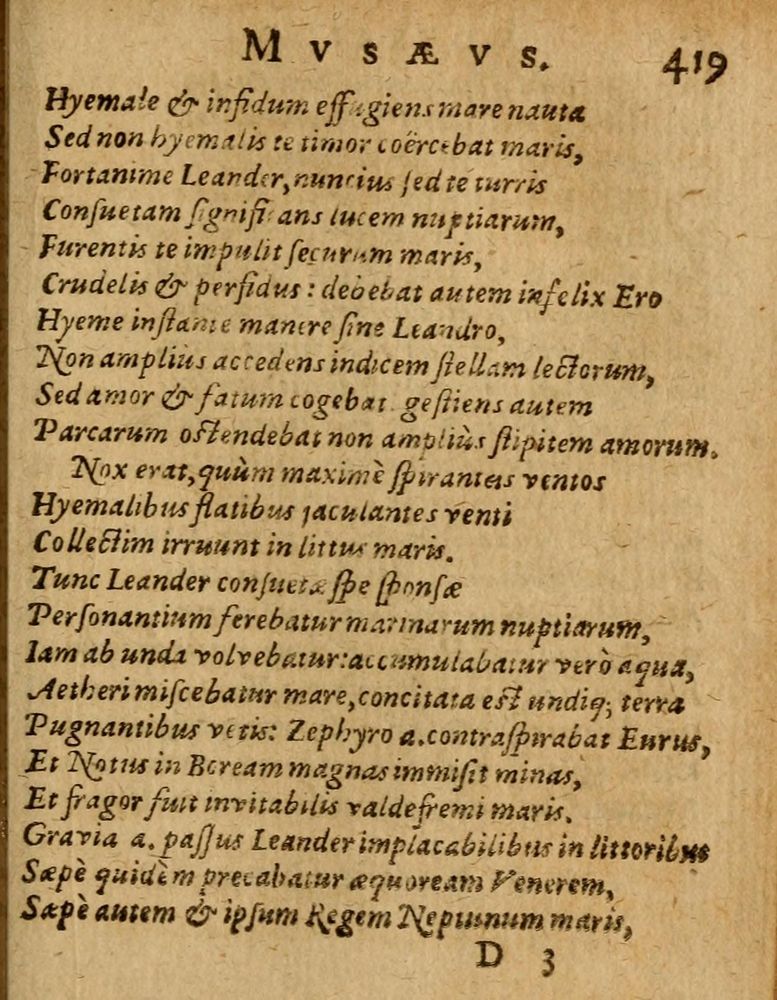 MVSÆVS. 419
Hyemale & infidum effugiens mare nauta
Sed non hyemalis te timor coërcebat maris,
Fortanime Leander, nuncius sed te turris
Consuetam significans lucem nuptiarum,
Furentis te impulit securum maris,
Crudelis & perfidus: debebat autem infelix Ero
Hyeme instante manere sine Leandro,
Non amplius accedens indicem stellam lectorum,
Sed amor & fatum cogebat. gestiens autem
Parcarum ostendebat non ampliùs stipitem amorum.
Nox erat, quùm maximè spirantes ventos
Hyemalibus flatibus jaculantes venti
Collectim irruunt in littus maris.
Tunc Leander consuetæ spe sponsæ
Personantium ferebatur marinarum nuptiarum,
Iam ab unda volvebatur: accumulabatur verò aqua,
Aetheri miscebatur mare, concitata est undiq; terra
Pugnantibus vētis: Zephyro a. contraspirabat Eurus,
Et Notus in Boream magnas immisit minas,
Et fragor fuit invitabilis valde fremi maris.
Gravia a. passus Leander implacabilibus in littoribus
Sæpè quidèm precabatur æquoream Venerem,
Sæpè autem & ipsum Regem Neptunum maris,
D 3